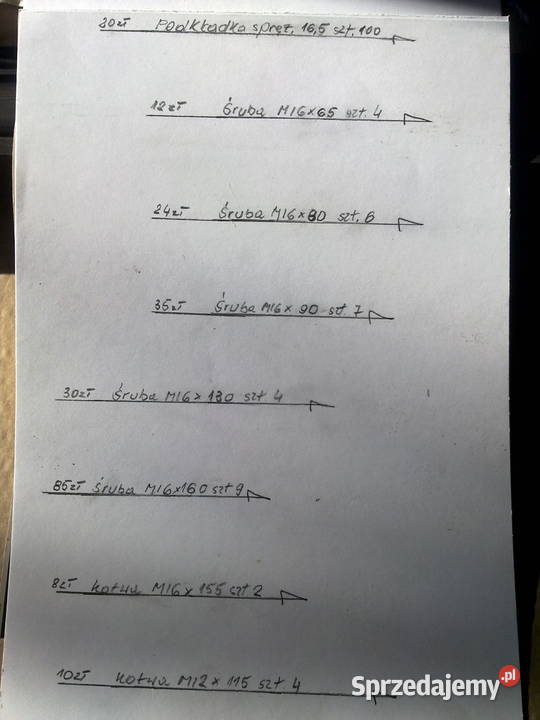 30zł Podkładka spręż. 16,5 szt. 100
12zł Śruba M16x65 szt. 4
24zł Śruba M16x80 szt. 6
35zł Śruba M16x90 szt. 7
30zł Śruba M16x130 szt 4
85zł Śruba M16x160 szt 9
8zł kotwa M16x155 szt 2
10zł kotwa M12x115 szt. 4
Sprzedajemy.pl